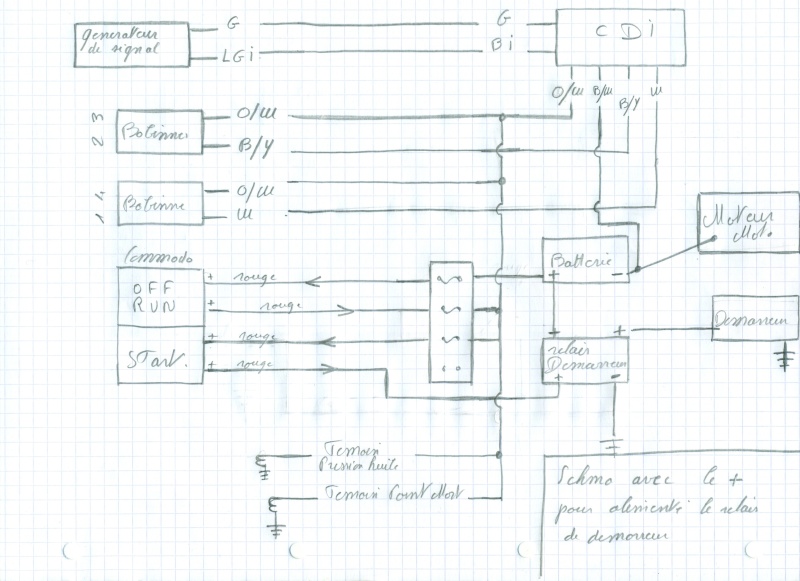 generateur
de signal
G
LGi
G
Bi
CDi
O/W
B/W
B/Y
W
2 3
Bobinne
O/W
B/Y
1 4
Bobinne
O/W
W
Moteur
Moto.
Commodo
OFF
RUN
START.
+ rouge
+ rouge
+ rouge
+ rouge
Batterie
+ -
+ +
relair
Demarreur
+ -
Demarreur
Temoin
Pression huile
Temoin Point Mort
Schmo avec le +
pour alimenté le relair
de demarreur